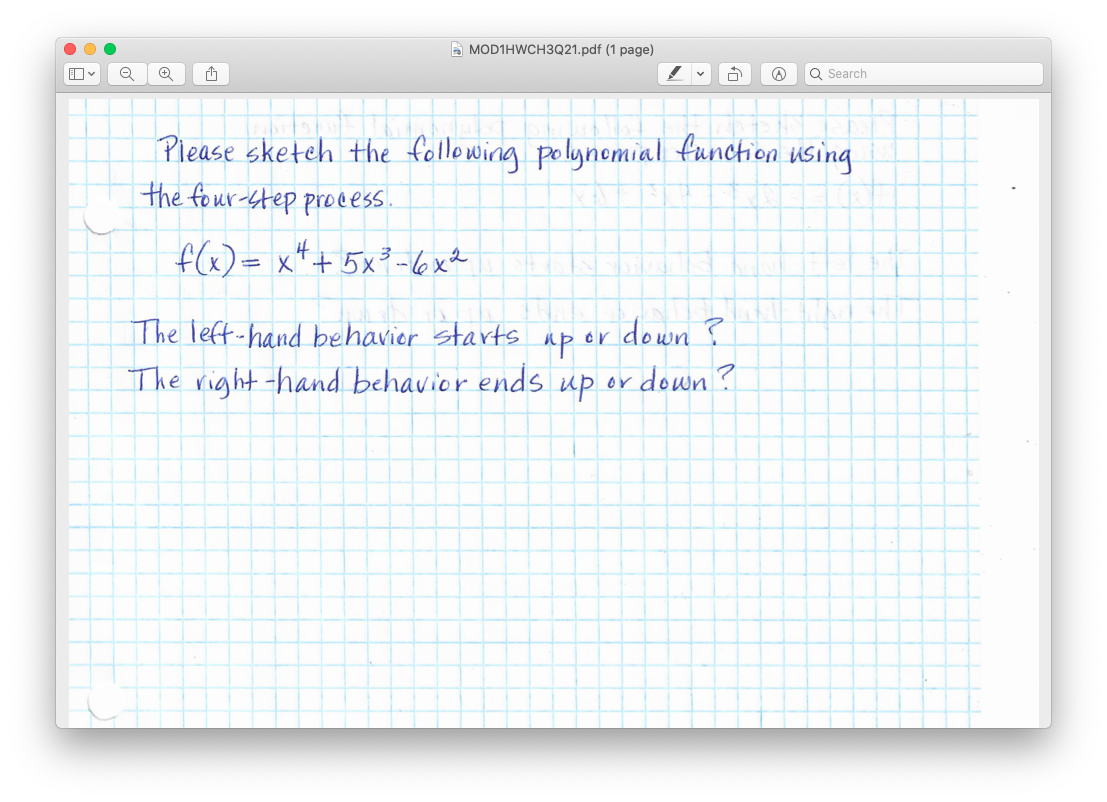 MOD1HWCH3Q21.pdf (1 page)
Search
Please sketch the following polynomial function using
the four-step process.
f(x) = x⁴ + 5x³ - 6x²
The left-hand behavior starts up or down?
The right-hand behavior ends up or down?